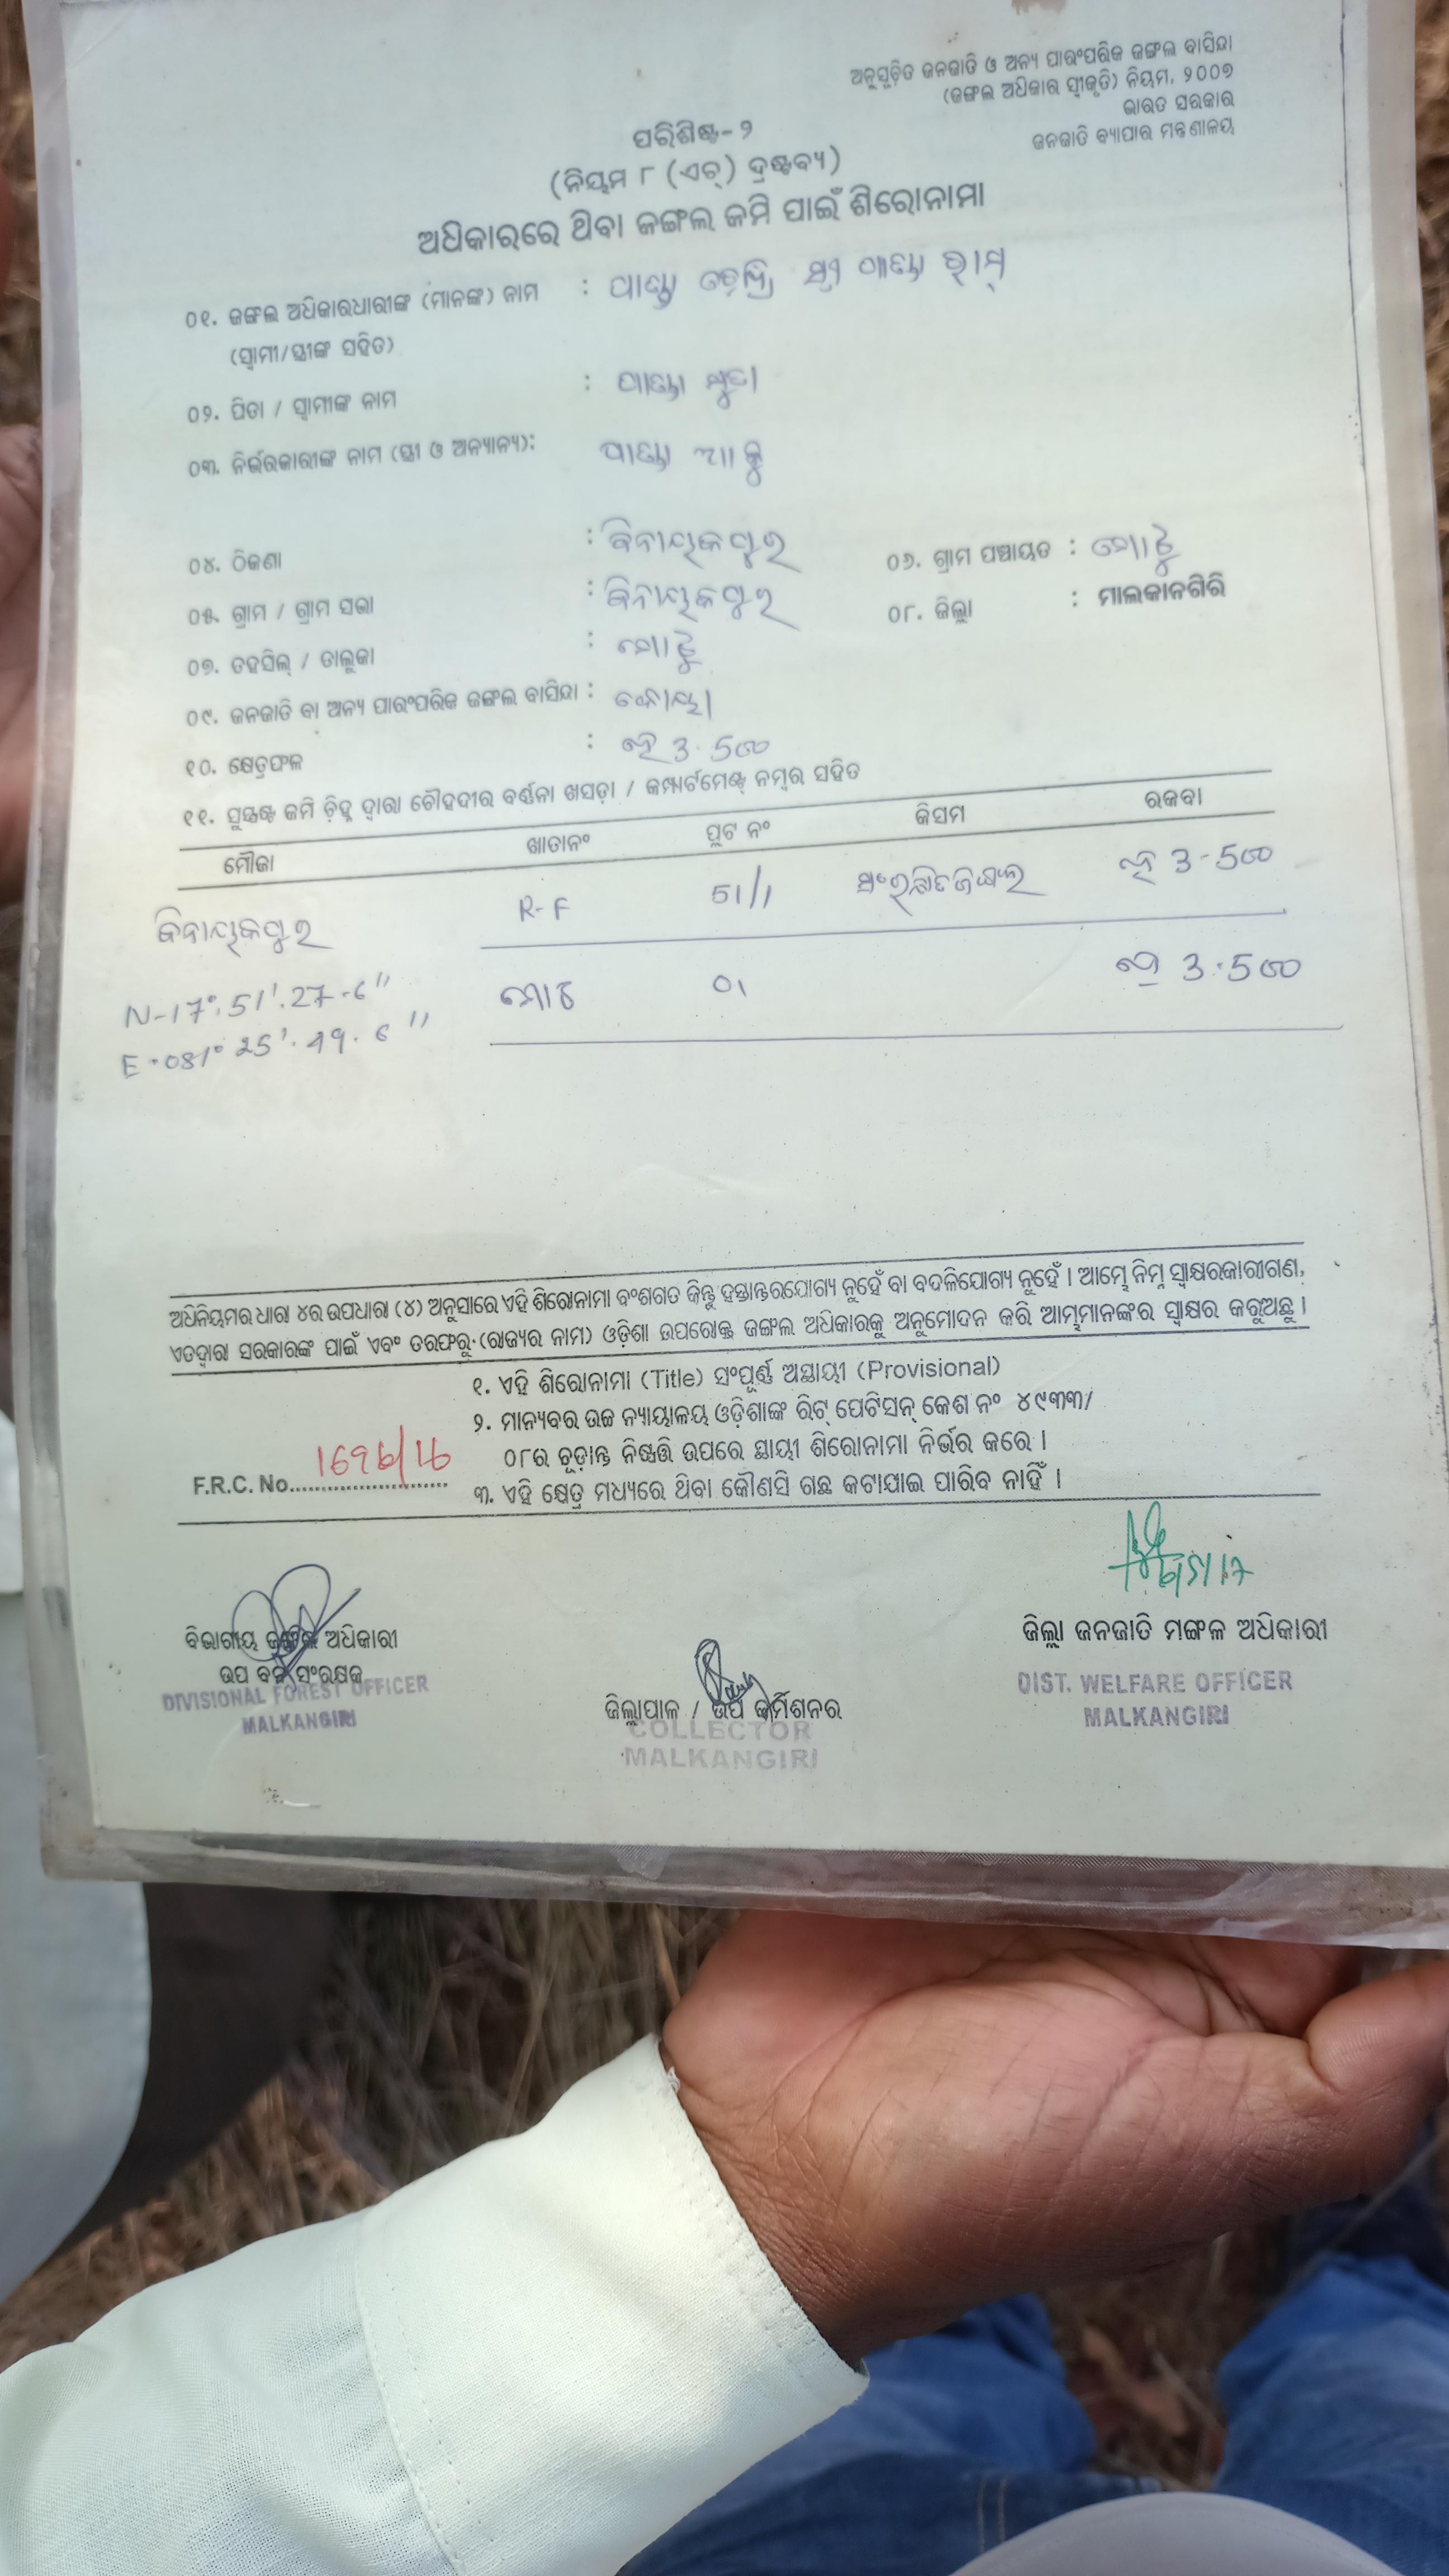 ଅନୁସୂଚିତ ଜନଜାତି ଓ ଅନ୍ୟ ପାରଂପରିକ ଜଙ୍ଗଲ ବାସିନ୍ଦା
(ଜଙ୍ଗଲ ଅଧିକାର ସ୍ୱୀକୃତି) ନିୟମ, ୨୦୦୭
ଭାରତ ସରକାର
ଜନଜାତି ବ୍ୟାପାର ମନ୍ତ୍ରଣାଳୟ
ପରିଶିଷ୍ଟ-୨
(ନିୟମ ୮ (ଏଚ୍) ଦ୍ରଷ୍ଟବ୍ୟ)
ଅଧିକାରରେ ଥିବା ଜଙ୍ଗଲ ଜମି ପାଇଁ ଶିରୋନାମା
୦୧. ଜଙ୍ଗଲ ଅଧିକାରଧାରୀଙ୍କ (ମାନଙ୍କ) ନାମ :
(ସ୍ୱାମୀ/ସ୍ତ୍ରୀଙ୍କ ସହିତ)
୦୨. ପିତା / ସ୍ୱାମୀଙ୍କ ନାମ :
୦୩. ନିର୍ଭରକାରୀଙ୍କ ନାମ (ସ୍ତ୍ରୀ ଓ ଅନ୍ୟାନ୍ୟ):
୦୪. ଠିକଣା : ବିନାୟକପୁର
୦୬. ଗ୍ରାମ ପଞ୍ଚାୟତ :
୦୫. ଗ୍ରାମ / ଗ୍ରାମ ସଭା : ବିନାୟକପୁର
୦୮. ଜିଲ୍ଲା : ମାଲକାନଗିରି
୦୭. ତହସିଲ୍ / ତାଲୁକା :
୦୯. ଜନଜାତି ବା ଅନ୍ୟ ପାରଂପରିକ ଜଙ୍ଗଲ ବାସିନ୍ଦା : କୋୟା
୧୦. କ୍ଷେତ୍ରଫଳ : 3.500
୧୧. ସୁସ୍ପଷ୍ଟ ଜମି ଚିହ୍ନ ଦ୍ୱାରା ଚୌହଦୀର ବର୍ଣ୍ଣନା ଖସଡ଼ା / କମ୍ପାର୍ଟମେଣ୍ଟ୍ ନମ୍ବର ସହିତ
ମୌଜା ଖାତାନଂ ପ୍ଲଟ ନଂ କିସମ ରକବା
ବିନାୟକପୁର R-F 51/1 ସଂରକ୍ଷିତଜଙ୍ଗଲ 3-500
ମୋଟ ୦୧ 3.500
N-17°.51'.27.6"
E.081° 25'. 49. 6"
ଅଧିନିୟମର ଧାରା ୪ର ଉପଧାରା (୪) ଅନୁସାରେ ଏହି ଶିରୋନାମା ବଂଶଗତ କିନ୍ତୁ ହସ୍ତାନ୍ତରଯୋଗ୍ୟ ନୁହେଁ ବା ବଦଳିଯୋଗ୍ୟ ନୁହେଁ । ଆମ୍ଭେ ନିମ୍ନ ସ୍ୱାକ୍ଷରକାରୀଗଣ,
ଏତଦ୍ୱାରା ସରକାରଙ୍କ ପାଇଁ ଏବଂ ତରଫରୁ (ରାଜ୍ୟର ନାମ) ଓଡ଼ିଶା ଉପରୋକ୍ତ ଜଙ୍ଗଲ ଅଧିକାରକୁ ଅନୁମୋଦନ କରି ଆମ୍ଭମାନଙ୍କର ସ୍ୱାକ୍ଷର କରୁଅଛୁ ।
୧. ଏହି ଶିରୋନାମା (Title) ସଂପୂର୍ଣ୍ଣ ଅସ୍ଥାୟୀ (Provisional)
୨. ମାନ୍ୟବର ଉଚ୍ଚ ନ୍ୟାୟାଳୟ ଓଡ଼ିଶାଙ୍କ ରିଟ୍ ପେଟିସନ୍ କେଶ ନଂ ୪୯୩୩/
୦୮ର ଚୂଡ଼ାନ୍ତ ନିଷ୍ପତ୍ତି ଉପରେ ସ୍ଥାୟୀ ଶିରୋନାମା ନିର୍ଭର କରେ ।
F.R.C. No.
୩. ଏହି କ୍ଷେତ୍ର ମଧ୍ୟରେ ଥିବା କୌଣସି ଗଛ କଟାଯାଇ ପାରିବ ନାହିଁ ।
ବିଭାଗୀୟ ଜଙ୍ଗଲ ଅଧିକାରୀ
ଉପ ବନ ସଂରକ୍ଷକ
DIVISIONAL FOREST OFFICER
MALKANGIRI
ଜିଲ୍ଲାପାଳ / ଉପ କମିଶନର
COLLECTOR
MALKANGIRI
ଜିଲ୍ଲା ଜନଜାତି ମଙ୍ଗଳ ଅଧିକାରୀ
DIST. WELFARE OFFICER
MALKANGIRI